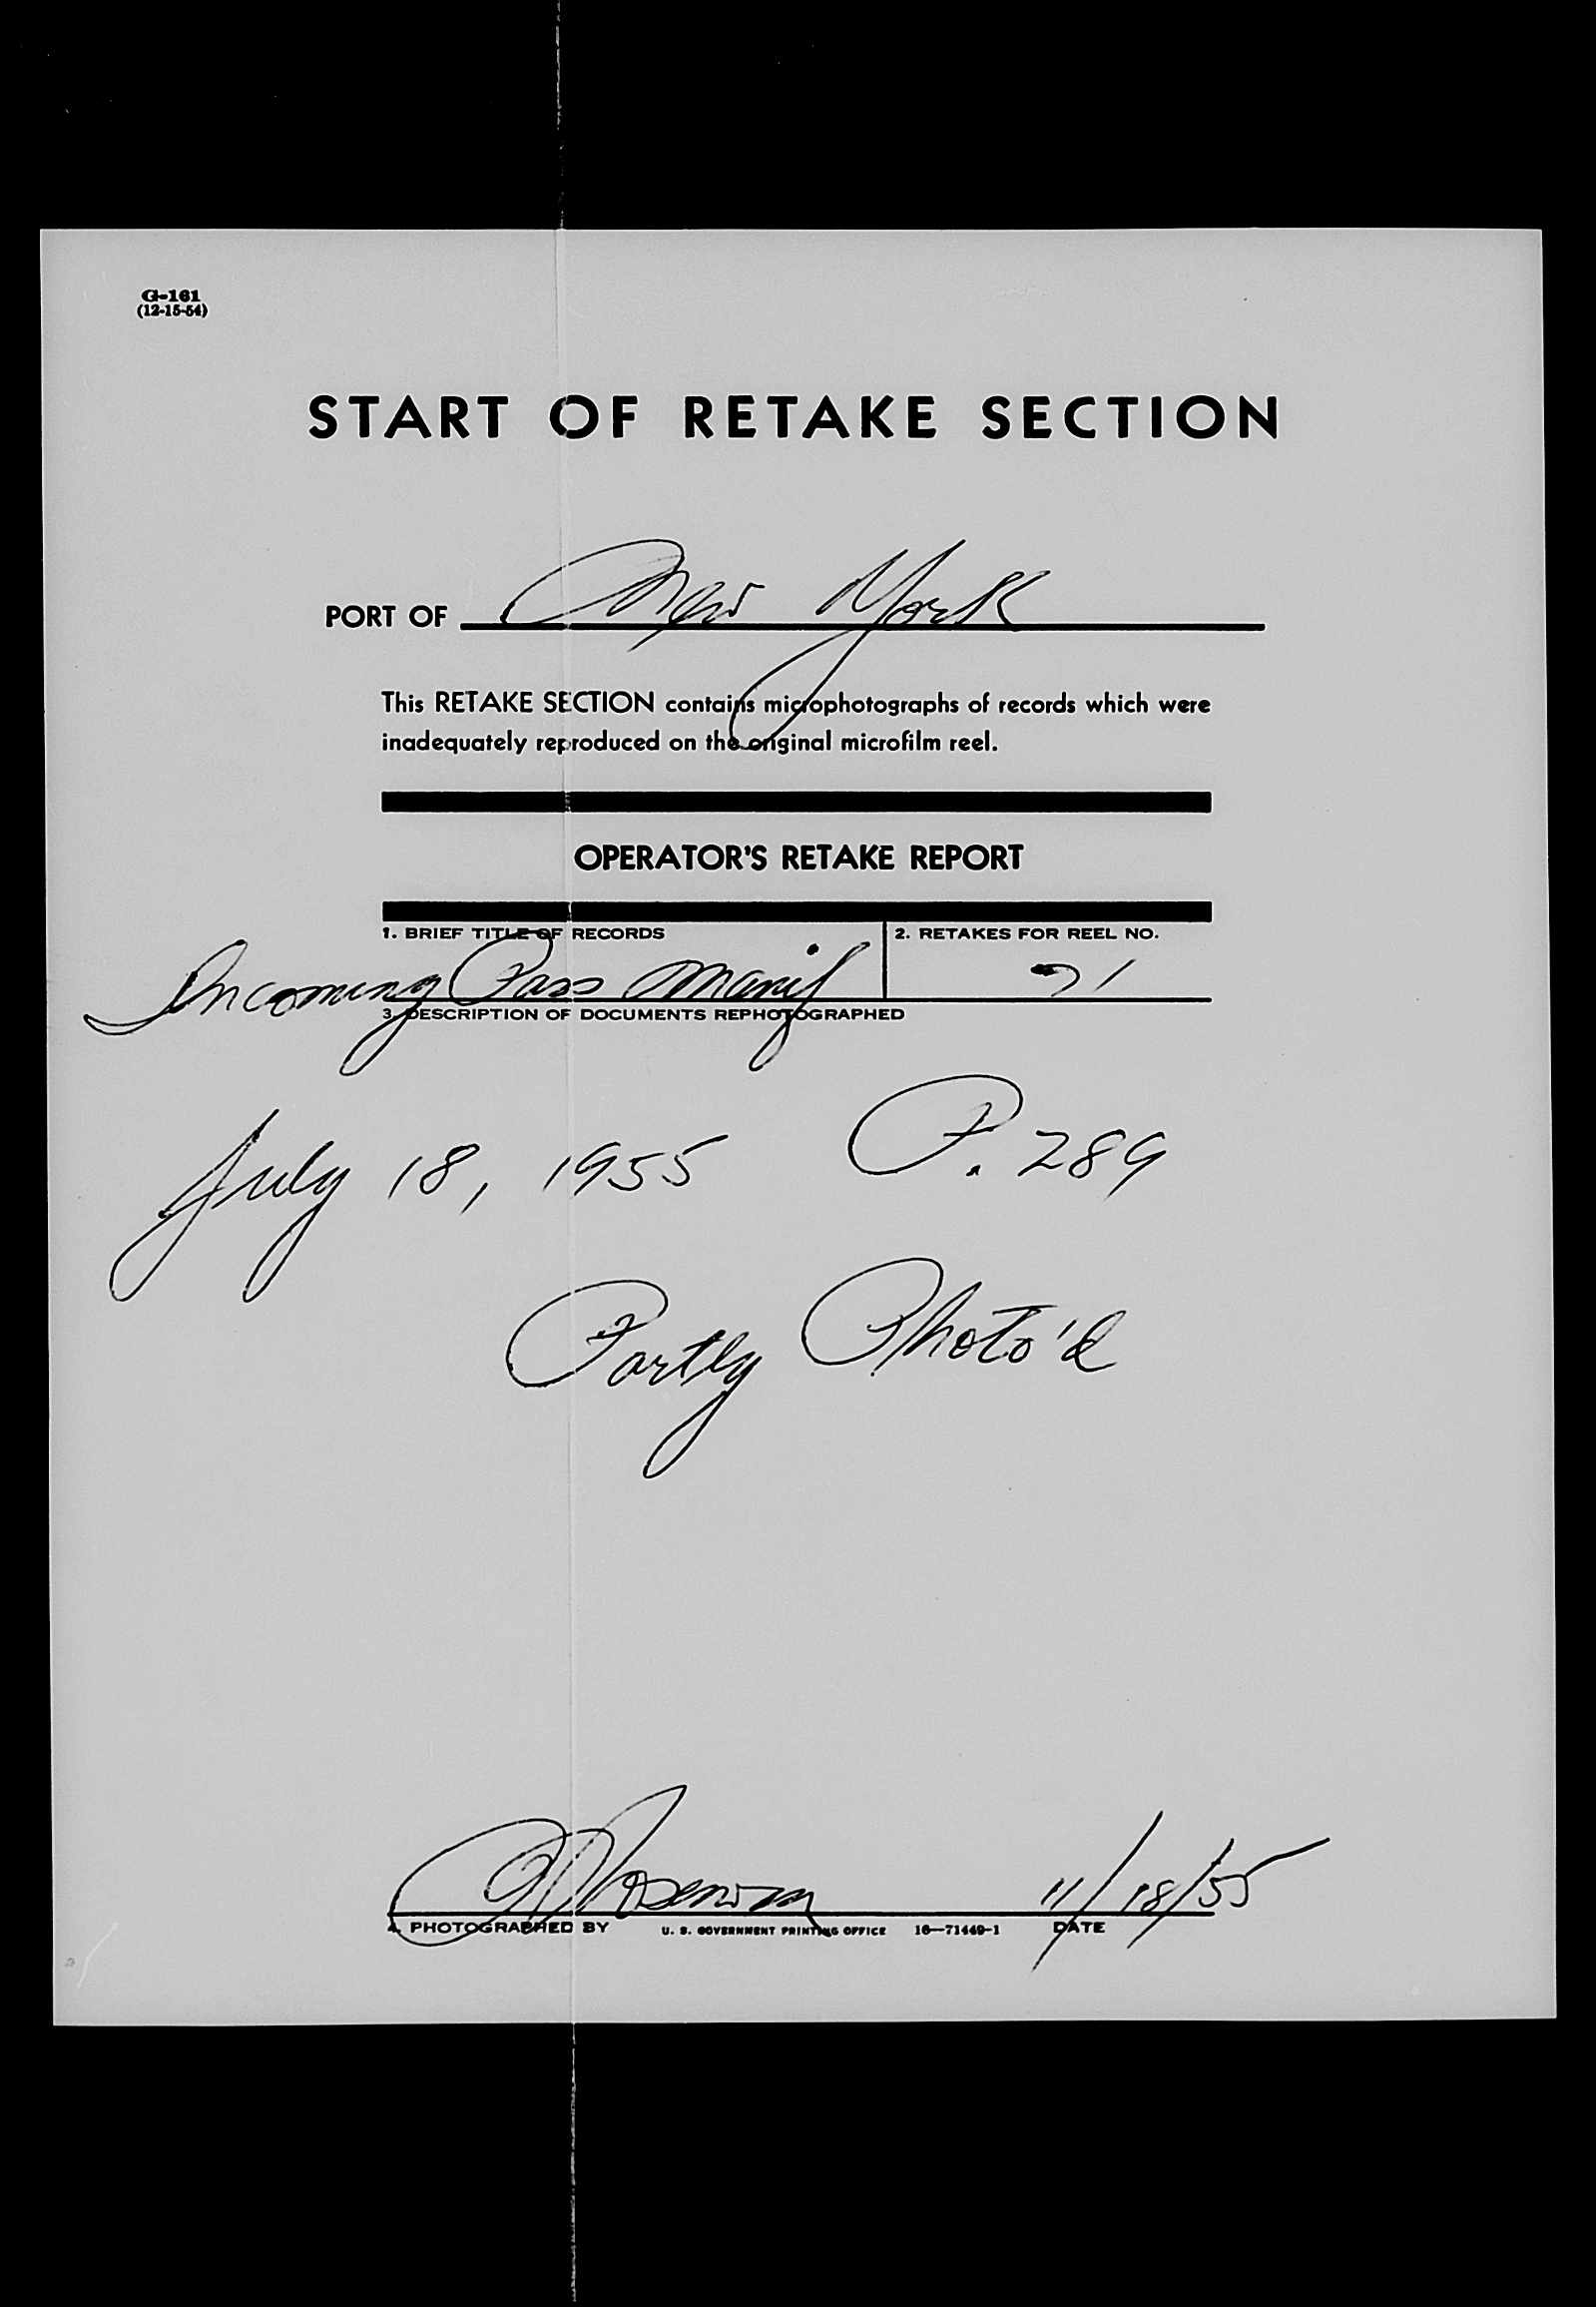 G-161
(12-15-54)
START OF RETAKE SECTION
PORT OF New York
This RETAKE SECTION contains microphotographs of records which were
inadequately reproduced on the original microfilm reel.
OPERATOR'S RETAKE REPORT
1. BRIEF TITLE OF RECORDS 2. RETAKES FOR REEL NO.
Incoming Pass Manif 71
3. DESCRIPTION OF DOCUMENTS REPHOTOGRAPHED
July 18, 1955 P. 289
Partly Photo'd
11/18/55
4. PHOTOGRAPHED BY U. S. GOVERNMENT PRINTING OFFICE 16—71449-1 DATE